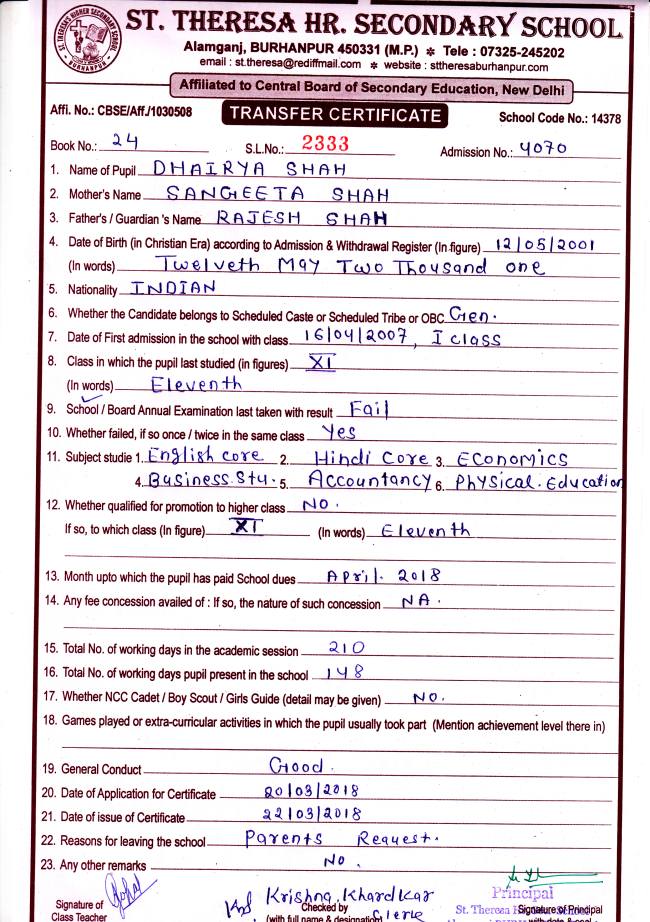 ST. THERESA HR. SECONDARY SCHOOL
Alamganj, BURHANPUR 450331 (M.P.) ✻ Tele : 07325-245202
email : st.theresa@rediffmail.com ✻ website : sttheresaburhanpur.com
Affiliated to Central Board of Secondary Education, New Delhi
Affi. No.: CBSE/Aff./1030508 TRANSFER CERTIFICATE School Code No.: 14378
Book No.: 24 S.L.No.: 2333 Admission No.: 4070
1. Name of Pupil DHAIRYA SHAH
2. Mother's Name SANGEETA SHAH
3. Father's / Guardian 's Name RAJESH SHAH
4. Date of Birth (in Christian Era) according to Admission & Withdrawal Register (In figure) 12/05/2001
(In words) Twelveth May Two Thousand one
5. Nationality INDIAN
6. Whether the Candidate belongs to Scheduled Caste or Scheduled Tribe or OBC Gen.
7. Date of First admission in the school with class 16/04/2007, I class
8. Class in which the pupil last studied (in figures) XI
(In words) Eleventh
9. School / Board Annual Examination last taken with result Fail
10. Whether failed, if so once / twice in the same class Yes
11. Subject studie 1. English core 2. Hindi Core 3. ECONOMICS
4. Business.Stu. 5. Accountancy 6. Physical. Education
12. Whether qualified for promotion to higher class NO.
If so, to which class (In figure) XI (In words) Eleventh
13. Month upto which the pupil has paid School dues April. 2018
14. Any fee concession availed of : If so, the nature of such concession NA.
15. Total No. of working days in the academic session 210
16. Total No. of working days pupil present in the school 148
17. Whether NCC Cadet / Boy Scout / Girls Guide (detail may be given) NO.
18. Games played or extra-curricular activities in which the pupil usually took part (Mention achievement level there in)
19. General Conduct Good.
20. Date of Application for Certificate 20/03/2018
21. Date of issue of Certificate 22/03/2018
22. Reasons for leaving the school Parents Request.
23. Any other remarks No.
Krishna Khardkar Principal
Signature of Checked by St. Theresa Signature of Principal
Class Teacher (with full name & designation) Clerk